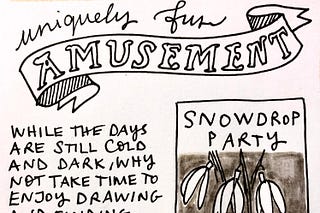 uniquely fun
AMUSEMENT
WHILE THE DAYS
ARE STILL COLD
AND DARK, WHY
NOT TAKE TIME TO
ENJOY DRAWING
SNOWDROP
PARTY